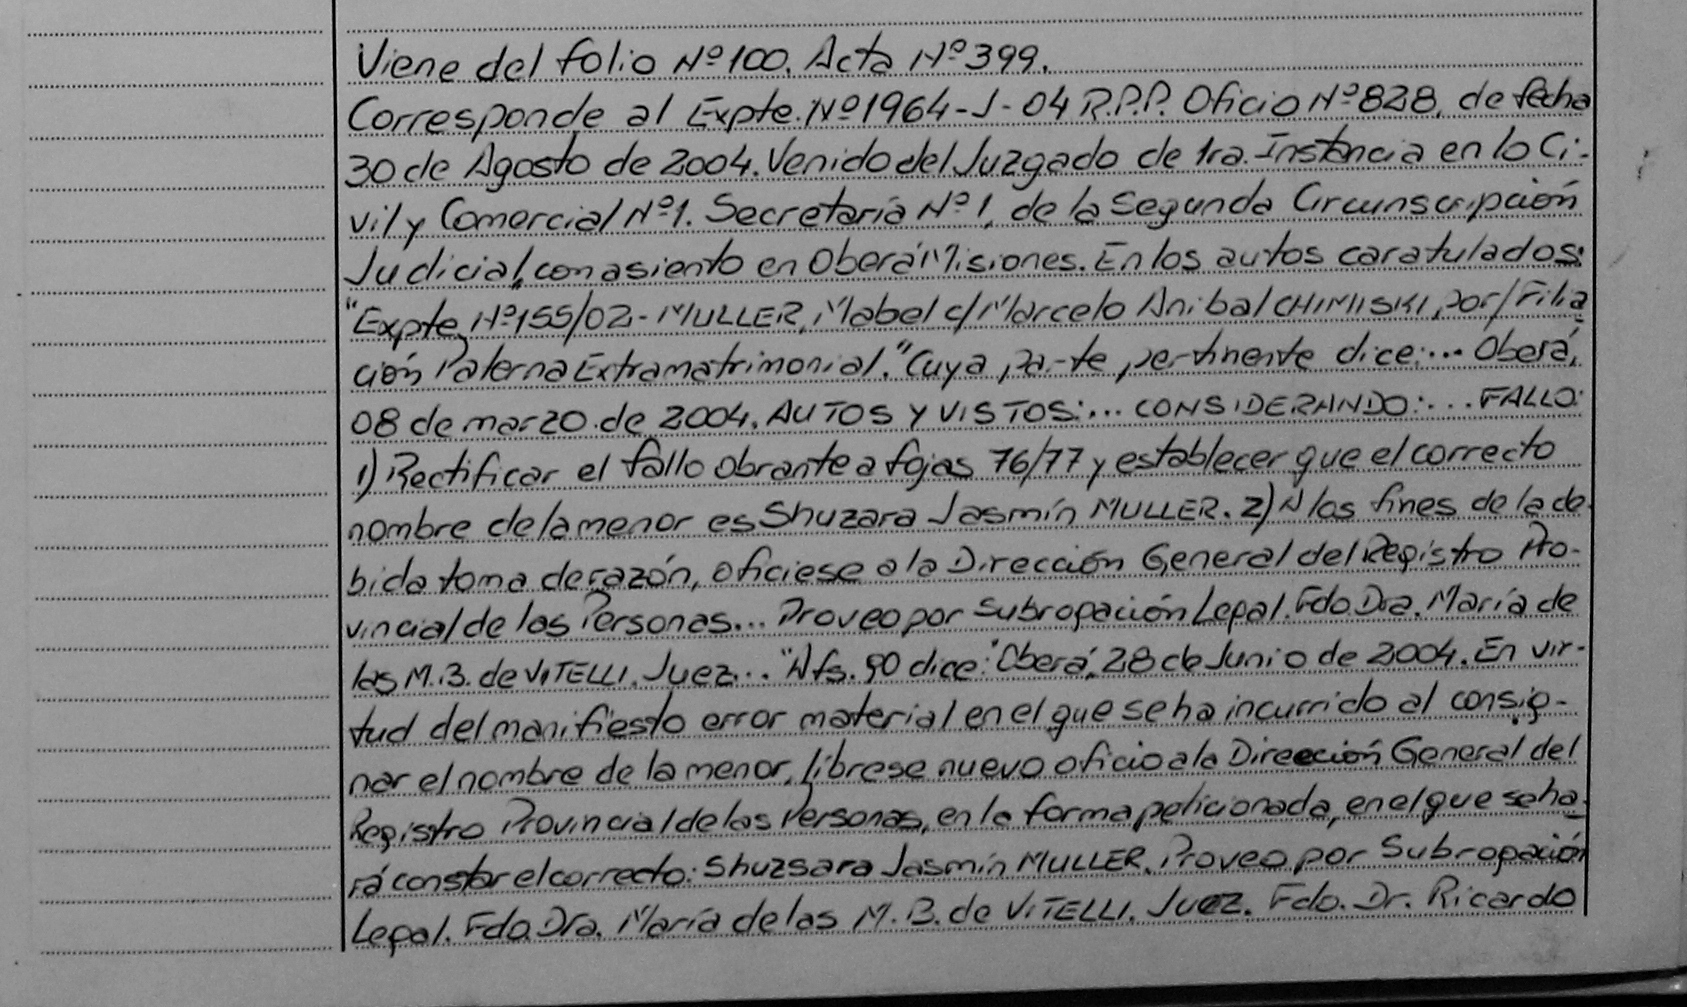 Viene del folio Nº 100. Acta Nº 399.
Corresponde al Expte. Nº 1964-J-04 R.P.P. Oficio Nº 828, de fecha
30 de Agosto de 2004. Venido del Juzgado de 1ra. Instancia en lo Ci-
vil y Comercial Nº 1. Secretaría Nº 1, de la Segunda Circunscripción
Judicial, con asiento en Oberá Misiones. En los autos caratulados:
"Expte Nº 155/02 - MULLER, Mabel c/ Marcelo Anibal CHIMISKI, por/ Filia
ción Paterna Extramatrimonial." Cuya parte pertinente dice:... Oberá,
08 de marzo de 2004. AUTOS Y VISTOS:... CONSIDERANDO:... FALLO:
1) Rectificar el fallo obrante a fojas 76/77 y establecer que el correcto
nombre de la menor es Shuzara Jasmín MULLER. 2) A los fines de la de
bida toma de razón, ofíciese a la Dirección General del Registro Pro-
vincial de las Personas... Proveo por Subrogación Legal. Fdo Dra. María de
las M.B. de VITELLI. Juez..." A fs. 90 dice: "Oberá, 28 de Junio de 2004. En vir-
tud del manifiesto error material en el que se ha incurrido al consig-
nar el nombre de la menor, líbrese nuevo oficio a la Dirección General del
Registro Provincial de las Personas, en la forma peticionada, en el que se ha-
rá constar el correcto: Shuzsara Jasmín MULLER. Proveo por Subrogación
Legal. Fdo. Dra. María de las M.B. de VITELLI. Juez. Fdo. Dr. Ricardo